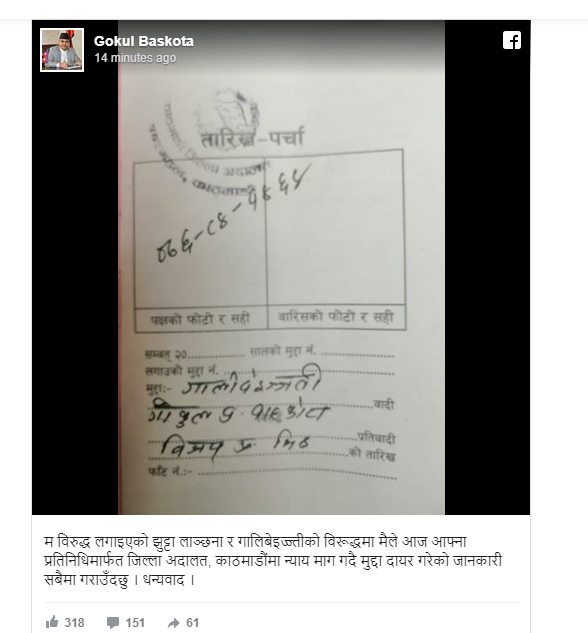 Gokul Baskota
14 minutes ago
तारिख-पर्चा
पक्षको फोटो र सही
वारिसको फोटो र सही
सम्बत् २०............... सालको मुद्दा नं. ...............
लगाउको मुद्दा नं. ...............
मुद्दाः- गाली बेइज्जती
वादी
प्रतिवादी
को तारिख
फाँट नं.:- ...............
म विरुद्ध लगाइएको झुट्टा लाञ्छना र गालिबेइज्तीको विरूद्धमा मैले आज आफ्ना
प्रतिनिधिमार्फत जिल्ला अदालत, काठमाडौंमा न्याय माग गदै मुद्दा दायर गरेको जानकारी
सबैमा गराउँदछु । धन्यवाद ।
318 151 61